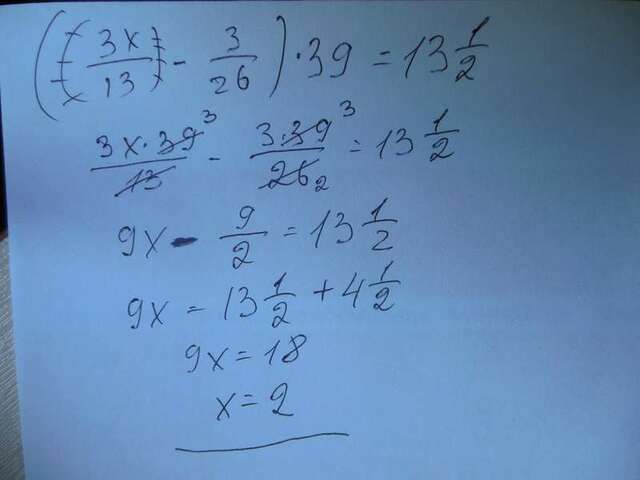 ((3x/13) - 3/26) · 39 = 13 1/2
3x · 39 3/13 - 3 · 39 3/26 2 = 13 1/2
9x - 9/2 = 13 1/2
9x = 13 1/2 + 4 1/2
9x = 18
x = 2